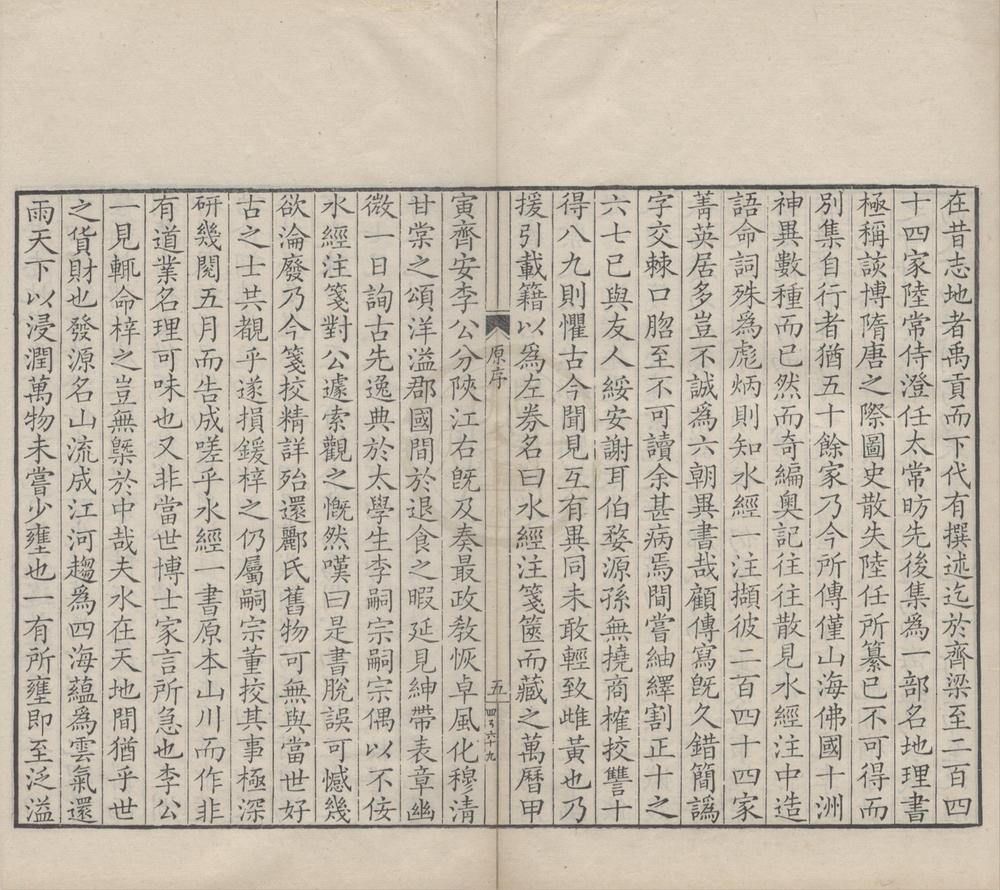 在昔志地者禹貢而下代有撰述迄於齊梁至二百四
十四家陸常侍澄任太常昉先後集為一部名地理書
極稱該博隋唐之際圖史散失陸任所纂已不可得而
別集自行者猶五十餘家乃今所傳僅山海佛國十洲
神異數種而已然而奇編奧記往往散見水經注中造
語命詞殊為彪炳則知水經一注擷彼二百四十四家
菁英居多豈不誠為六朝異書哉顧傳寫旣久錯簡譌
字交棘口䐃至不可讀余甚病焉間嘗紬繹割正十之
六七已與友人綏安謝耳伯婺源孫無撓商榷挍讐十
得八九則懼古今聞見互有異同未敢輕致雌黃也乃
援引載籍以為左券名曰水經注箋篋而藏之萬曆甲
原序
五
四百六十九
寅齊安李公分陜江右旣及奏最政教恢卓風化穆清
甘棠之頌洋溢郡國間於退食之暇延見紳帶表章幽
微一日詢古先逸典於太學生李嗣宗嗣宗偶以不佞
水經注箋對公遽索觀之慨然嘆曰是書脫誤可憾幾
欲淪廢乃今箋挍精詳殆還酈氏舊物可無與當世好
古之士共覩乎遂損鍰梓之仍屬嗣宗董挍其事極深
研幾閱五月而告成嗟乎水經一書原本山川而作非
有道業名理可味也又非當世博士家言所急也李公
一見輒命梓之豈無槩於中哉夫水在天地間猶乎世
之貨財也發源名山流成江河趨為四海蘊為雲氣還
雨天下以浸潤萬物未嘗少壅也一有所壅即至泛溢